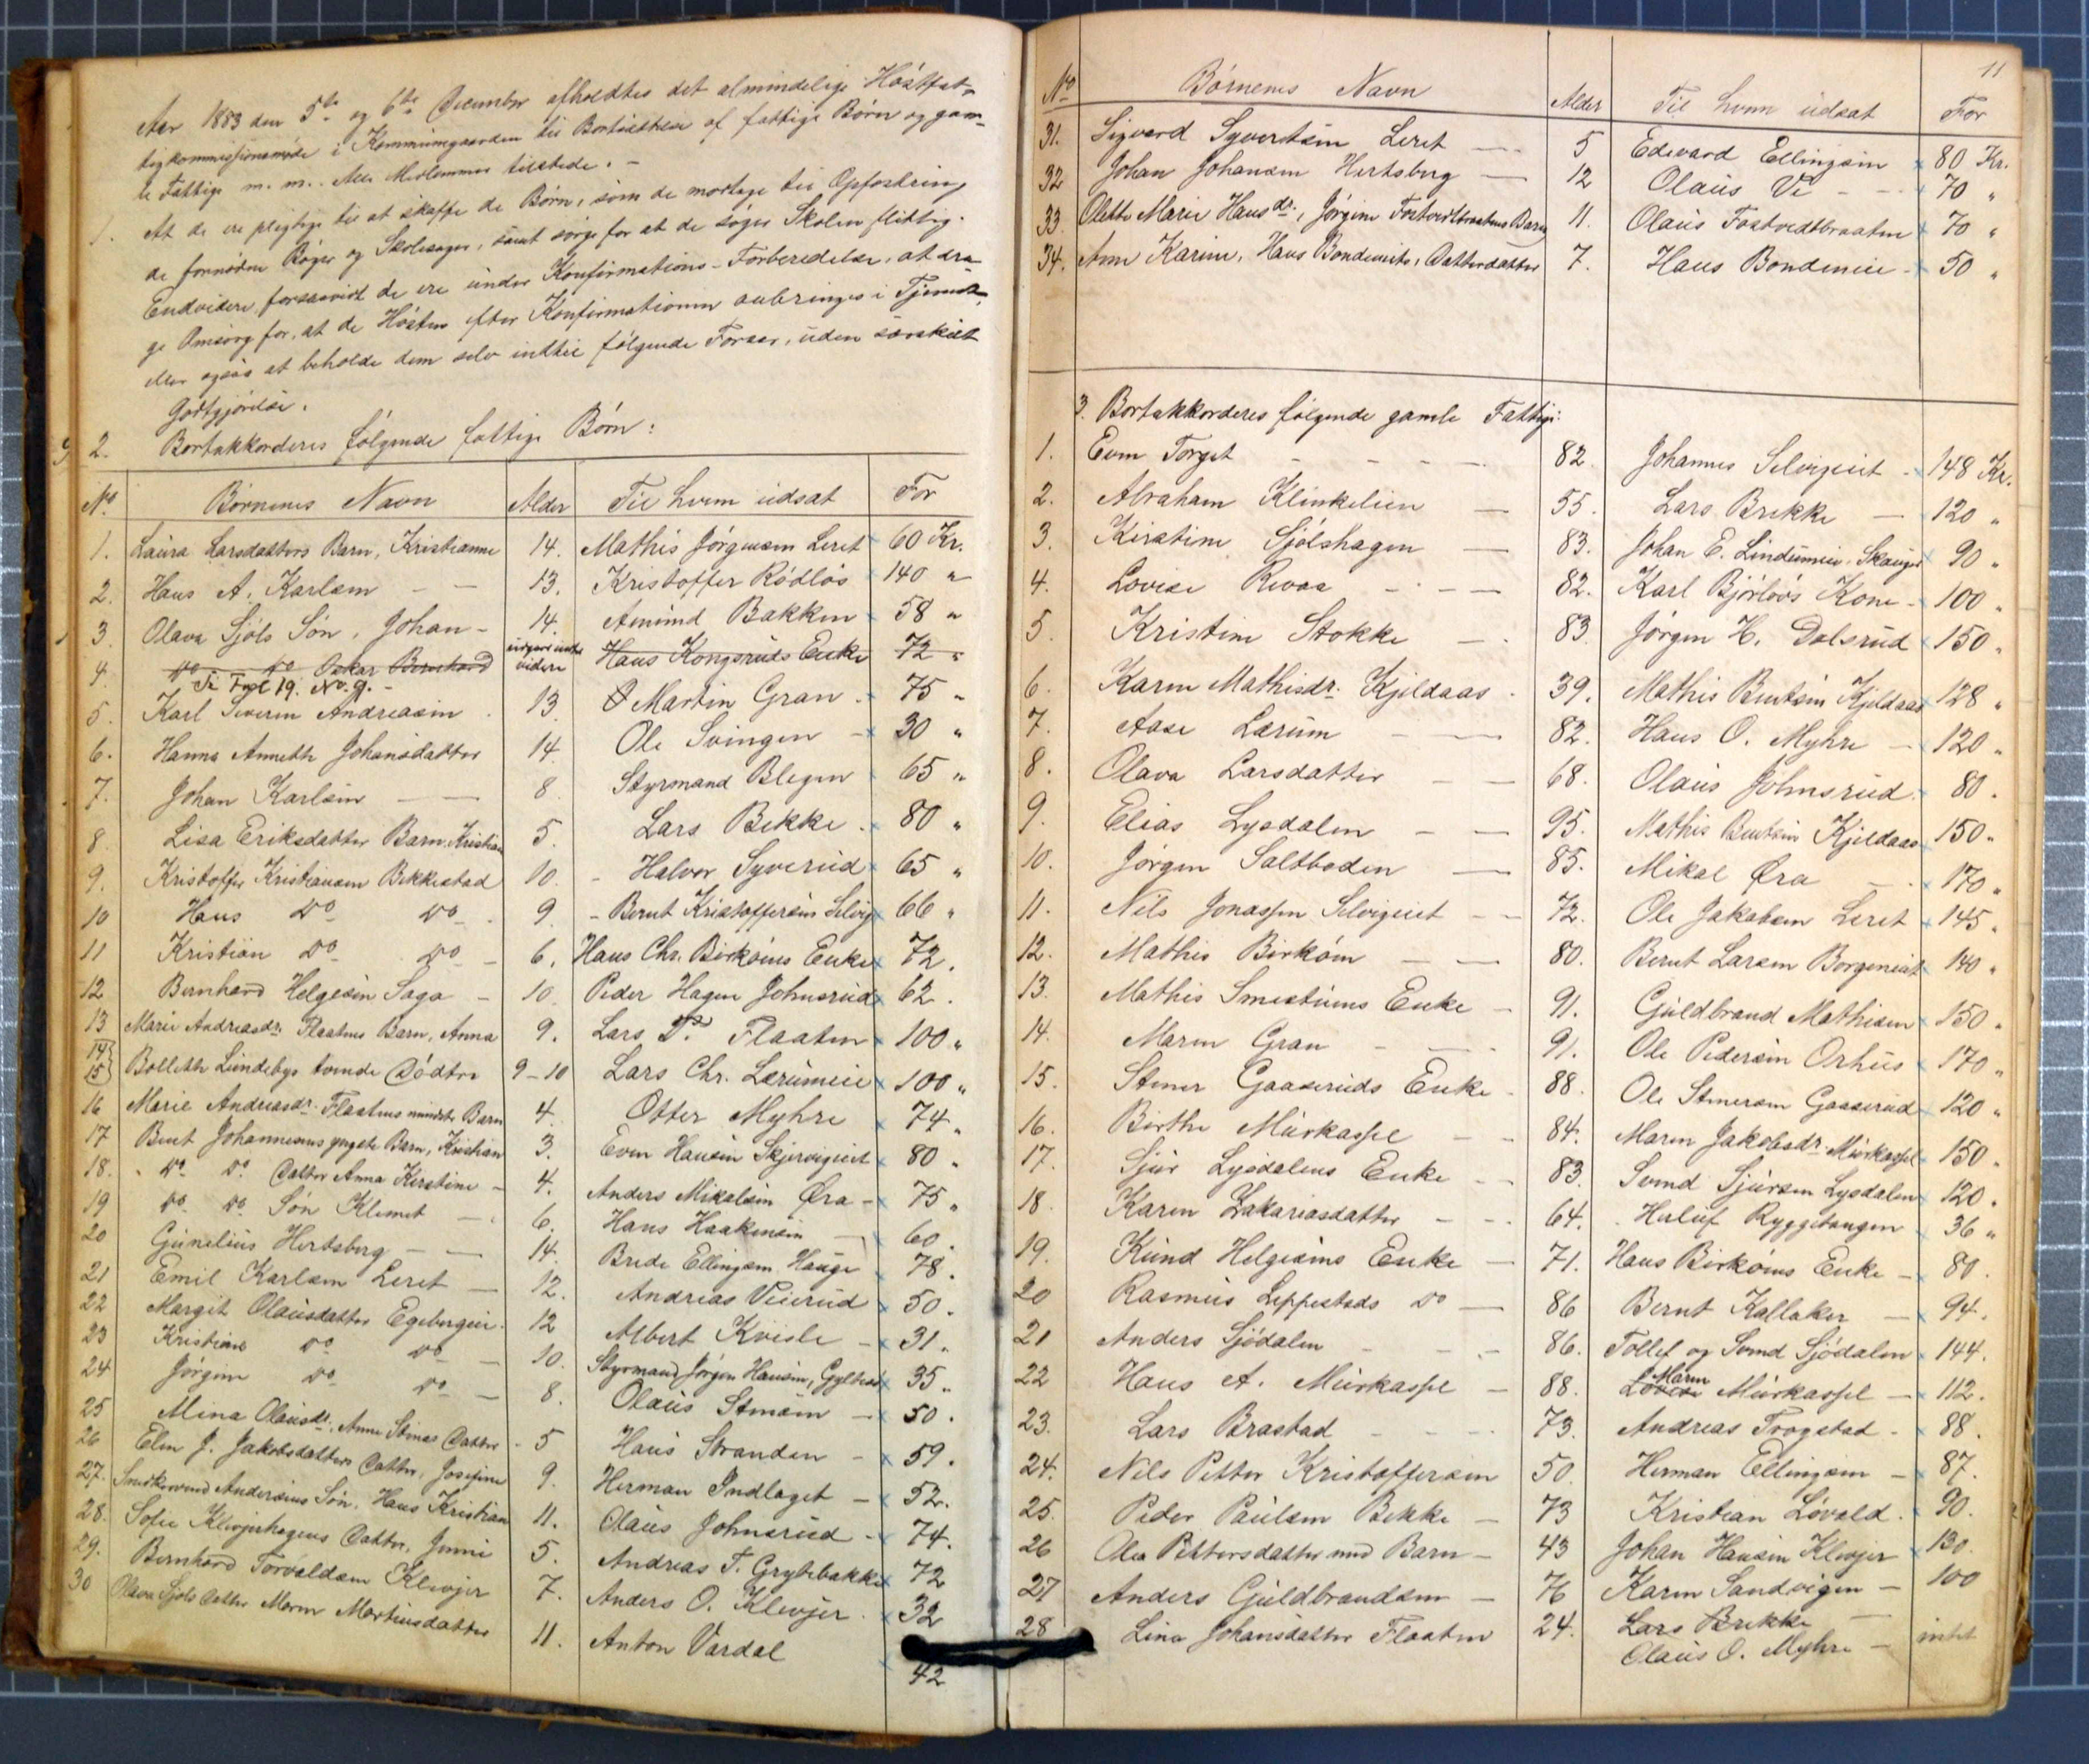 Aar 1883 den 5te og 6te December afholdtes det almindelige Höstfat-
tigkommissionsmöde i Kommunegaarden til Bortsættelse af fattige Börn og gam-
le Fattige m. m. Alle Medlemmer tilstede. -
1. At de ere pligtige til at skaffe de Börn, som de modtage til Opfostring
de fornödne Böger og Skolesager, samt sörge for at de söger Skolen flittig.
Endvidere forsaavidt de ere under Konfirmations-Forberedelse, at dra-
ge Omsorg for, at de Hösten efter Konfirmationen anbringes i Tjeneste,
eller ogsaa at beholde dem selv indtil fölgende Foraar, uden særskilt
Godtgjörelse.
2. Bortakkorderes fölgende fattige Börn:
No Börnenes Navn Alder Til hvem udsat For
1. Laura Larsdatters Barn, Kristianne 14. Mathis Jörgensen Leret 60 Kr.
2. Hans A. Karlsen 13. Kristoffer Rödlös 140 "
3. Olava Sjöls Sön, Johan - 14. Amund Bakken 58 "
4. Do Do Oskar Bernhard udgaar indtil videre Hans Kongsruds Enke 72 "
Se Fol 19. No. 9. -
5. Karl Severin Andreasen 13. Martin Gran 75 "
6. Hanna Annethe Johansdatter 14. Ole Svingen 30 "
7. Johan Karlsen 8. Styrmand Blegen 65 "
8. Lisa Eriksdatter Barn. Kristian 5. Lars Bekke 80 "
9. Kristoffer Kristiansen Bekkestad 10. Halvor Syverud 65 "
10 Hans Do Do 9. Bernt Kristoffersen Selvig 66 "
11 Kristian Do Do 6. Hans Chr. Birköins Enke 72.
12 Bernhard Helgesen Saga 10. Peder Hagen Johnsrud 62.
13 Marie Andreasdr. Flaatens Barn, Anna 9. Lars P. Flaaten 100 "
14 15 Bolleth Lundebys tvende Dödtre 9-10 Lars Chr. Lærumeie 100 "
16 Marie Andreasdr. Flaatens mindste Barn 4. Otter Myhre 74 "
17 Bent Johannesens yngste Barn, Kristian 3. Even Hansen Skjervigeiet 80 "
18. Do Do Datter Anna Kerstine 4. Anders Mikalsen Øra 75 "
19 Do Do Sön Klemet 6. Hans Haakensen 60.
20 Gunelius Hertsberg 14. Brede Ellingsen Hauge 78.
21 Emil Karlsen Leret 12. Andreas Veierud 50.
22 Margit Olausdatter Egebergeie 12 Albert Kvisle 31.
23 Kristiane Do Do 10. Styrmand Jörgen Hansen, 35 "
24 Jörgine Do Do 8. Olaus Stensen 50.
25 Mina Olausdr. Anne Stinas Datter 5 Hans Stranden 59.
26 Elen J. Jakobsdatters Datter, Josefine 9. Herman Indlaget 52.
27. Andersens Sön, Hans Kristian 11. Olaus Johnsrud 74.
28. Sofie Klevjerhagens Datter, Junni 5. Andreas T. Grytebakke 72
29. Bernhard Torvaldsen Klevjer 7. Anders O. Klevjer 32
30 Olava Sjöls Datter Maren Martinsdatter 11. Anton Vardal 42
11
No Börnenes Navn Alder Til hvem udsat For
31. Sigvard Syvertsen Leret 5 Edevard Ellingsen 80 Kr.
32 Johan Johansen Hertsberg 12 Olaus Ve 70 "
33. Olette Marie Hansdr., Jörgine Fostvedtbraatens Barn 11. Olaus Fostvedtbraaten 70 "
34. Ann Karine, Hans Bondeneies, Datterdatter 7. Hans Bondeneie 50 "
3. Bortakkorderes fölgende gamle Fattige:
1. Even Torget 82. Johannes Selvigeiet 148 Kr.
2. Abraham Klinkelien 55. Lars Brekke 120 "
3. Kirstine Sjölshagen 83. Johan E. Lindumeie, Skauger 90 "
4. Lovise Revaa 82. Karl Bjórlös Kone 100 "
5. Kristine Stokke 83 Jörgen H. Dalsrud 150 "
6. Karen Mathisdr. Kjeldaas 39. Mathis Bentsen Kjeldaas 128 "
7. Aase Lærum 82. Hans O. Myhre 120 "
8. Olava Larsdatter 68. Olaus Johnsrud 80 "
9. Elias Lysdalen 95. Mathis Bentsen Kjeldaas 150 "
10. Jörgen Saltboden 85. Mikal Øra 170 "
11. Nils Jonassen Selvigeiet 72. Ole Jakobsen Leret 145 "
12. Mathis Birköin 80. Bernt Larsen Borgeneiet 140 "
13. Mathis Smestuens Enke 91. Guldbrand Mathisen 150 "
14. Maren Gran 91. Ole Pedersen Orhus 170 "
15. Stener Gaaseruds Enke 88. Ole Stenersen Gaaserud 120 "
16. Birthe Murkassel 84. Maren Jakobsdr. Murkassel 150 "
17. Sjur Lysdalens Enke 83. Svend Sjursen Lysdalen 120 "
18. Karen Zakariasdatter 64. Herluf Ryggetangen 36 "
19. Knud Helgesens Enke 71. Hans Birköins Enke 80.
20 Rasmus Leppestads Do 86 Bernt Kallaker 94.
21 Anders Sjödalen 86. Tollef og Svend Sjödalen 144.
22 Hans A. Murkassel 88. Lovise Maren Murkassel 112.
23. Lars Brastad 73. Andreas Trogstad 88.
24. Nils Petter Kristoffersen 50. Herman Ellingsen 87.
25. Peder Paulsen Bekke 73 Kristian Lövald 90.
26 Olea Pettersdatter med Barn 43 Johan Hansen Klevjer 130.
27 Anders Guldbrandsen 76 Karen Sandvigen 100
28 Lina Johansdatter Flaaten 24. Lars Brekke
Olaus O. Myhre intet